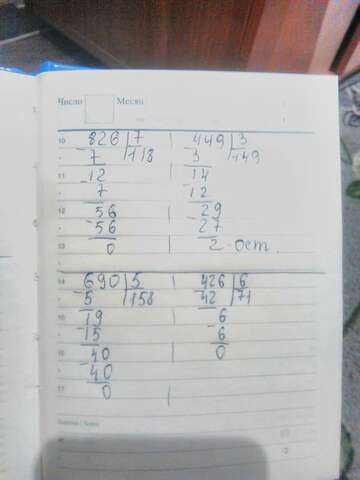 Число Месяц
10 826 7 449 3
7 118 3 149
11 12 14
7 12
12 56 29
56 27
13 0 2 - ост.
14 690 5 426 6
5 158 42 71
15 19 6
15 6
16 40 0
40
17 0